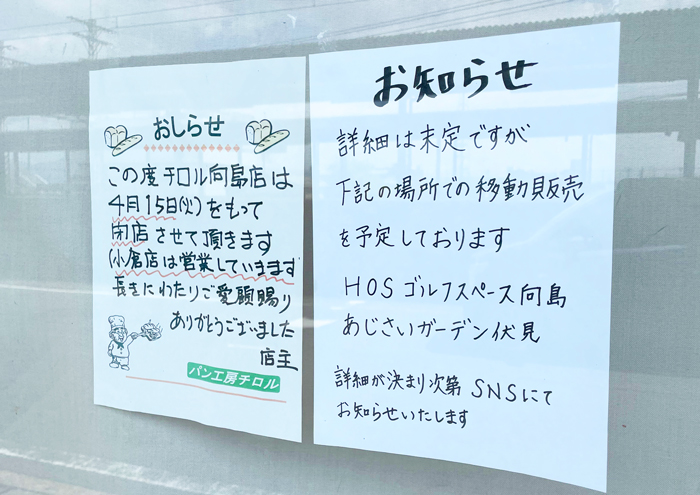 おしらせ
この度チロル向島店は
4月15日(火)をもって
閉店させて頂きます
(小倉店は営業していきます
長きにわたりご愛顧賜り
ありがとうございました
店主
パン工房チロル
お知らせ
詳細は未定ですが
下記の場所での移動販売
を予定しております
HOSゴルフスペース向島
あじさいガーデン伏見
詳細が決まり次第SNSにて
お知らせいたします